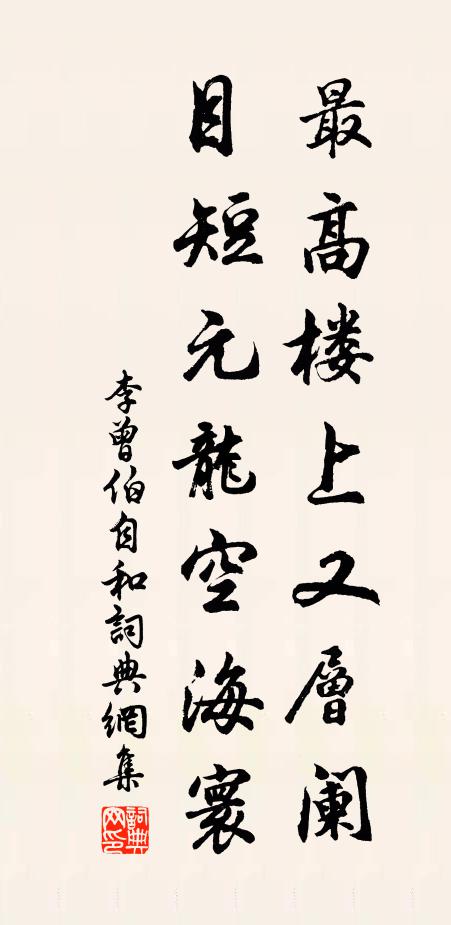 最高楼上又層阑
目短元龍空海寰
李曾伯自和詞典網集
詞典网印